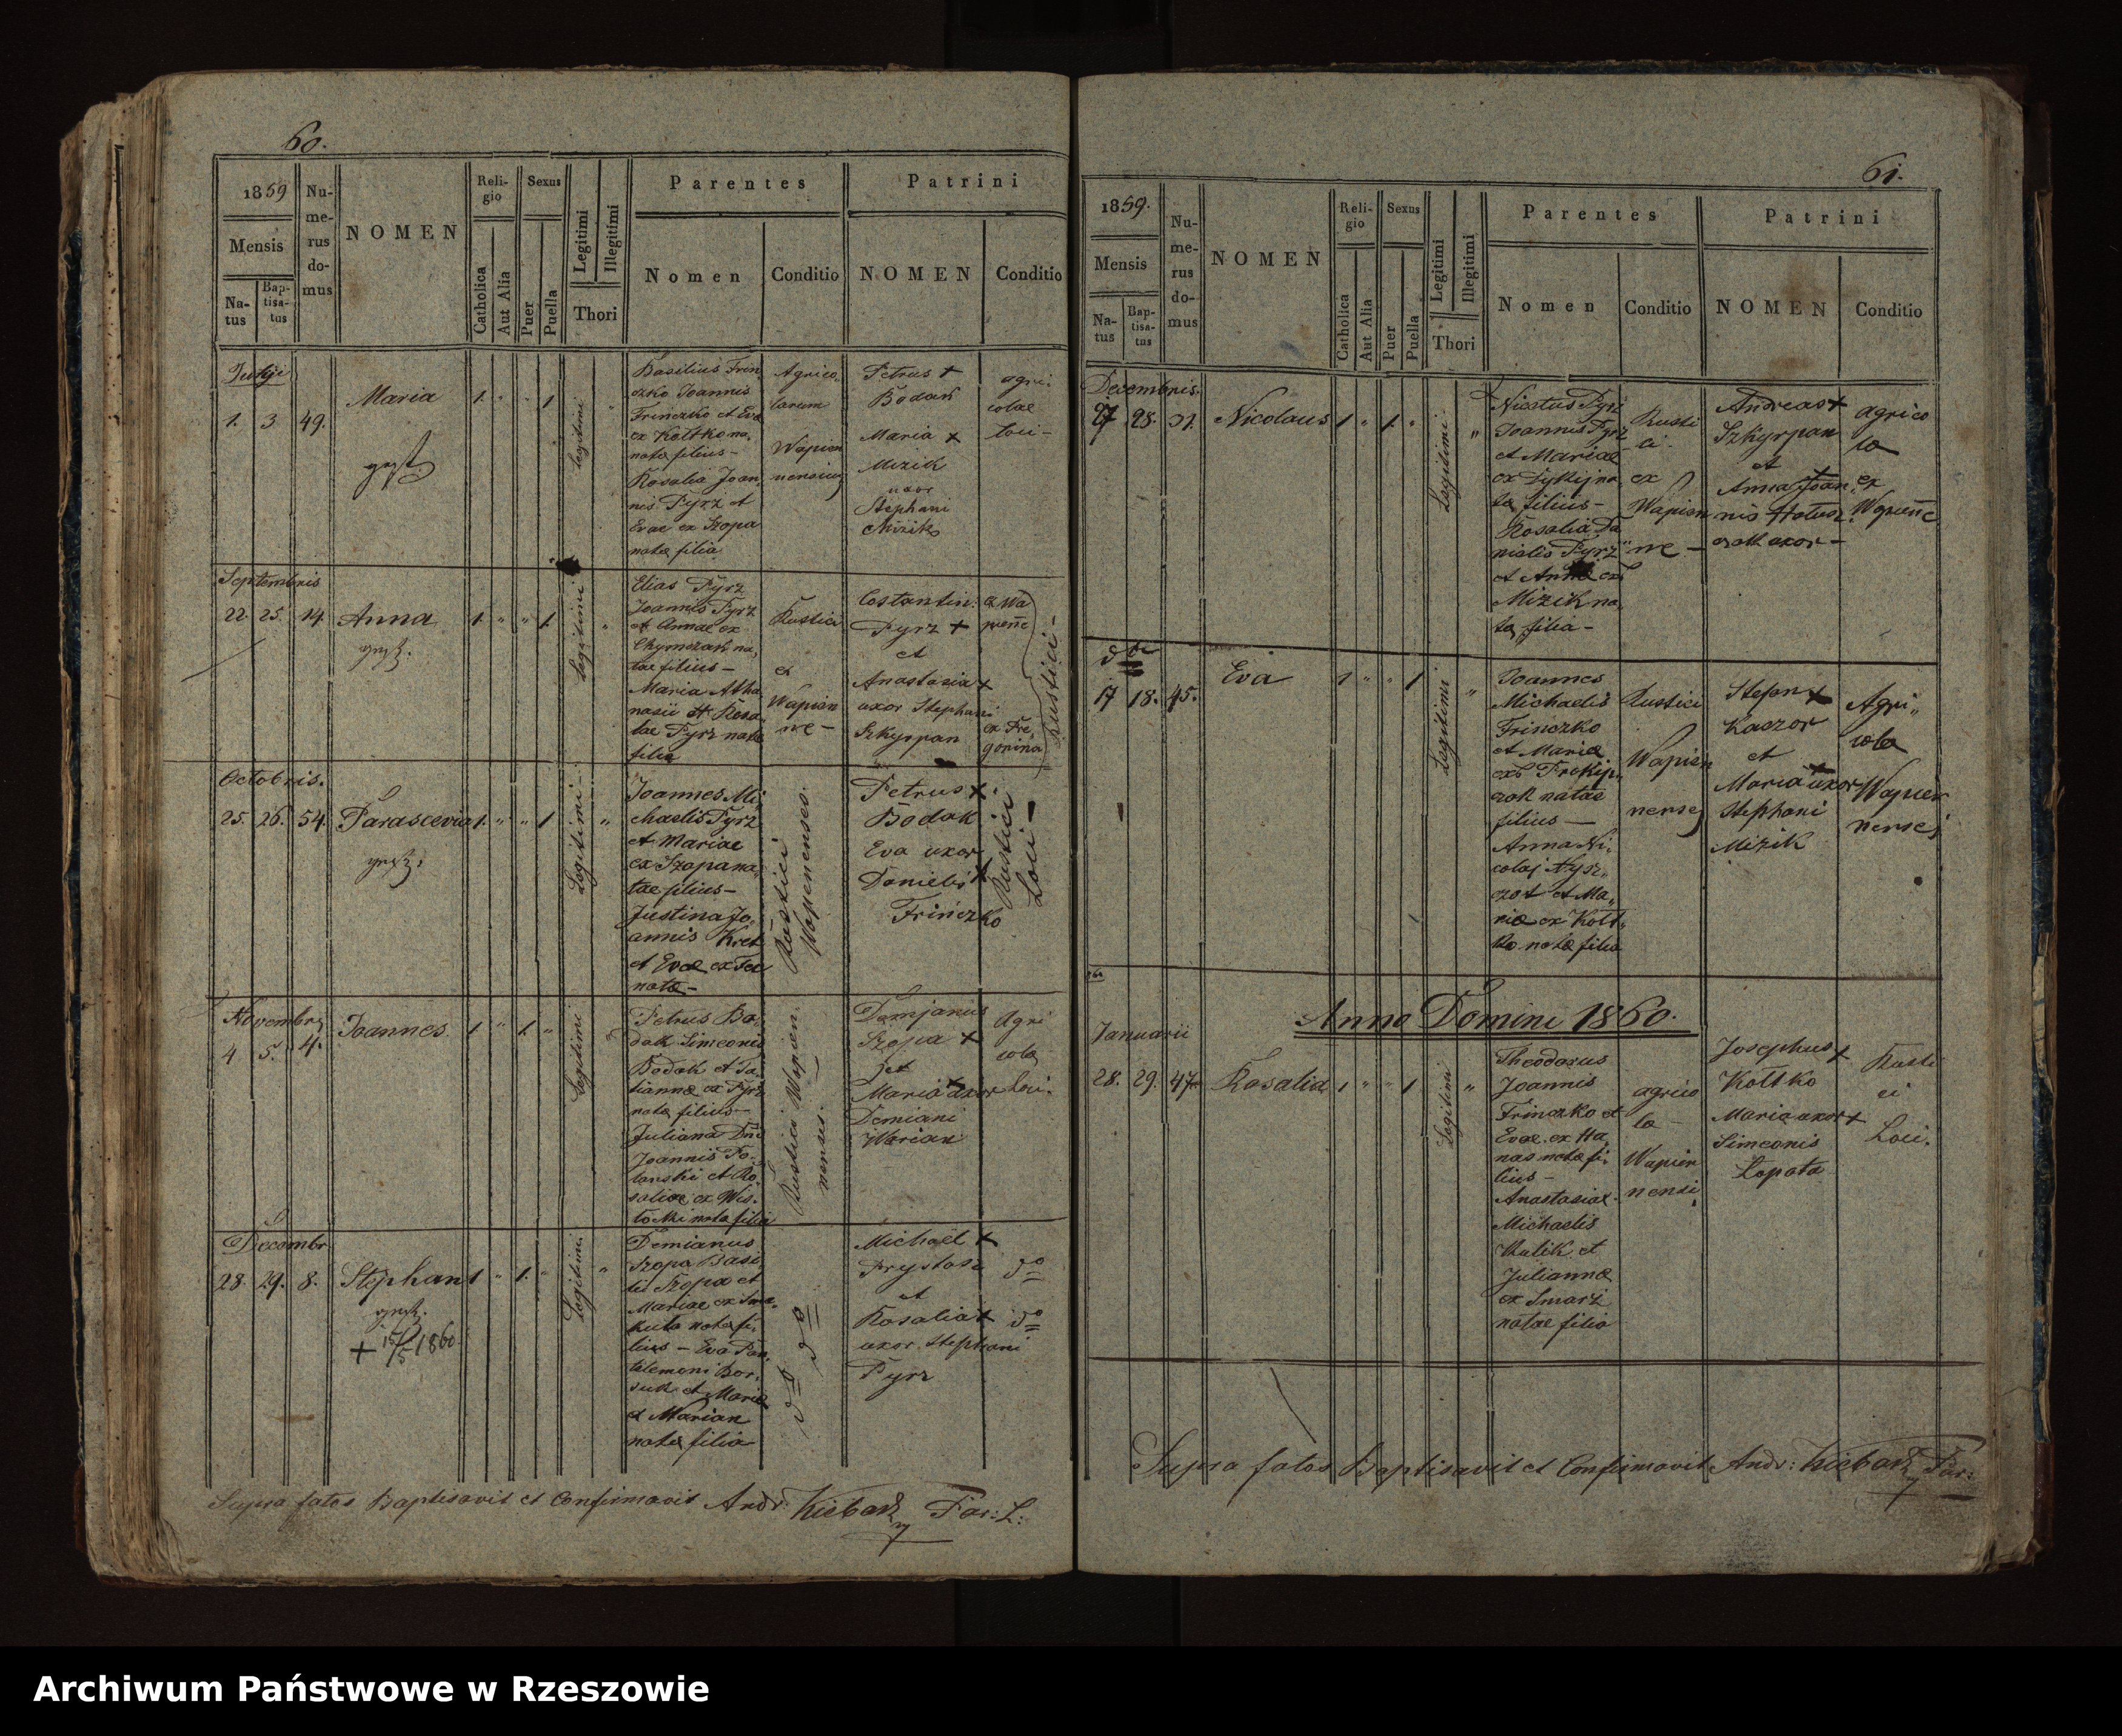 60.
1859
Numerus domus
NOMEN
Religio
Sexus
Legitimi
Illegitimi
Parentes
Patrini
Mensis
Natus
Baptisatus
Catholica
Aut Alia
Puer
Puella
Thori
Nomen
Conditio
NOMEN
Conditio
1. 3 49.
Maria
1. " " 1
Legitimi
Basilius Frin
czko Joannis
Frinczko et Eva
ex Kottko na,
nata filius -
Rosalia Joan,
nis Pyrz et
Evae ex Szopa
nata filia
Agrico,
larum
Petrus +
Bodak
Maria +
Mizik
uxor
Stephani
Mizik
agri-
colae
loci -
Septembris
22. 25. 14. Anna
1. " " 1.
Legitimi
Elias Pyrz
Joannis Pyrz
et Annae ex
tae filius -
Maria Atha
nasii et Rosa,
lae Pyrz nata
filia
Rustici
ex
Wapien
ne -
Costantin:
Pyrz +
et
Anastasia +
uxor Stephani
Szkyrpan
Rustici -
Octobris.
25. 26. 54. Parascevia 1. " " 1
Legitimi -
Joannes Mi,
chaelis Pyrz
et Mariae
ex Szopa na,
tae filius -
Justina Jo,
annis Kret
nata -
Rustici
Wapienenses.
Petrus +
Bodak
Eva uxor
Danielis +
Frinczko
Rustici
Loci -
Novembris
4 5. 4. Joannes. 1 " 1. "
Legitimi
Petrus Bo,
dak Simeonis
Bodak et Ta,
tianna ex Pyrz
nata filius -
Juliana
Joannis Po-
lanski et Ro,
salia ex Wis-
tocki nata filia
Rustici Wapien,
nenses.
Demjanus
Szopa +
et
Maria + uxor
Demiani
Warian
Agri
cola
loci.
Decembr
28. 29. 8. Stephan 1 " 1. "
+ 1860
Legitimi.
Demianus
Szopa Basi
lii Szopa et
Mariae ex Sme,
kula nata fi,
lius - Eva Pan,
talemoni Bor,
suk et Maria
et Marian
nata filia
do do
Michaël +
Prystasz
et
Rosalia +
uxor Stephani
Pyrz
do
do
Supra fatos Baptisavit et Confirmavit Andr: Kiebaz Par: L:
61.
1859.
Numerus domus
NOMEN
Religio
Sexus
Legitimi
Illegitimi
Parentes
Patrini
Mensis
Natus
Baptisatus
Catholica
Aut Alia
Puer
Puella
Thori
Nomen
Conditio
NOMEN
Conditio
Decembris.
27 28. 31. Nicolaus 1 " 1. "
Legitimi -
Joannis Pyrz
et Mariae
ex Dykij na
ta filius -
Rosalia Da
nielis Pyrz
et Anna ex
Mizik na,
ta filia -
Rusti
ci -
ex
Wapien
ne -
Andreas +
Szkyrpan
et
Anna Joan,
nis
uxor -
agrico
la
ex
Wapienne
do
17 18. 45.
Eva
1 " " 1
Legitimi
Joannes
Michaelis
Frinczko
et Maria
ex Prokip,
czak natae
filius -
Anna Ni,
colaj Hyrz,
czot et Ma,
ria ex Kott,
ko nata filia
Rustici
Wapien
nenses
Stefan +
Kaczor
et
Maria uxor
Stephani
Mizik
Agri,
cola
Wapien
nenses
Anno Domini 1860.
Januarii
28. 29. 47. Rosalia 1 " " 1
Legitimi
Theodorus
Joannis
Frinczko et
Evae ex Ha,
nas nata fi,
lius -
Anastasiae
Michaelis
Kulik et
Julianna
ex Smarz
natae filia
agrico
la -
Wapien
nensi,
Josephus +
Kottko
Maria uxor +
Simeonis
Łopata
Rusti
ci
Loci.
Supra fatos Baptisavit et Confirmavit Andr: Kiebaz Par:
Archiwum Państwowe w Rzeszowie